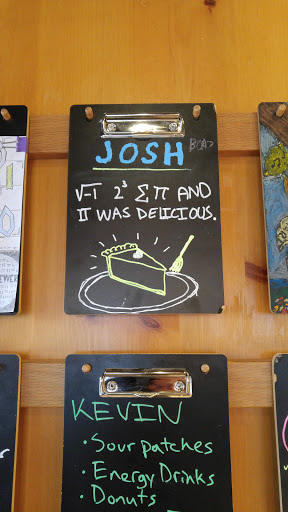 JOSH
√-1 2³ ∑ π AND
IT WAS DELICIOUS.
KEVIN
• Sour patches
• Energy Drinks
• Donuts